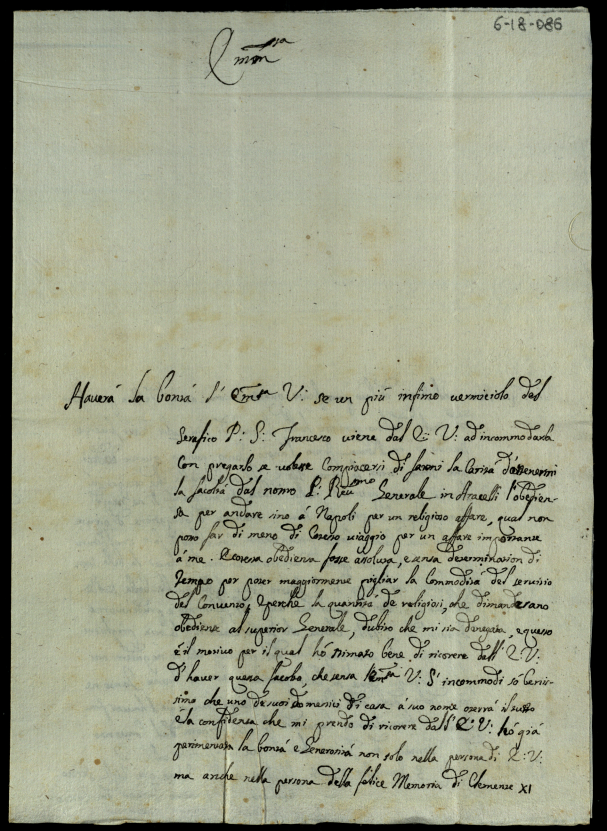 6-18-086
Em̃ sa
Haverà la bontà l' Em̃sa V: se un più infimo vermiciolo del
Serafico P: S: Francesco viene dall' E: V: ad incommodarla
con pregarlo se volesse compiacersi di farmi la Carità d'ottenermi
la facoltà dal nostro P: Revmo Generale in Aracelli l'obedien-
za per andare sino à Napoli per un religioso affare, qual non
posso far di meno di Cotesto viaggio per un affare importante
à me. E cotesta obedienza fosse assoluta, e senza determination di
tempo per poter maggiormente pigliar la Commodità del servitio
del Convento, e perche la quantità de religiosi, che dimandesano
obedienze al superior Generale, dubito che mi sia denegata, e questo
è il motivo per il qual hò stimato bene di ricorere dall' E: V:
d'haver questa, che senza l'Em̃sa V: s'incommodi sò benis-
simo che uno de suoi domestici di casa à suo nome otterrà il tutto
è la confidenza che mi prendo di ricorere dall' E: V: hò già
sperimentata la bontà e Generosità non solo nella persona di E: V:
ma anche nella persona della felice Memoria di Clemente XI